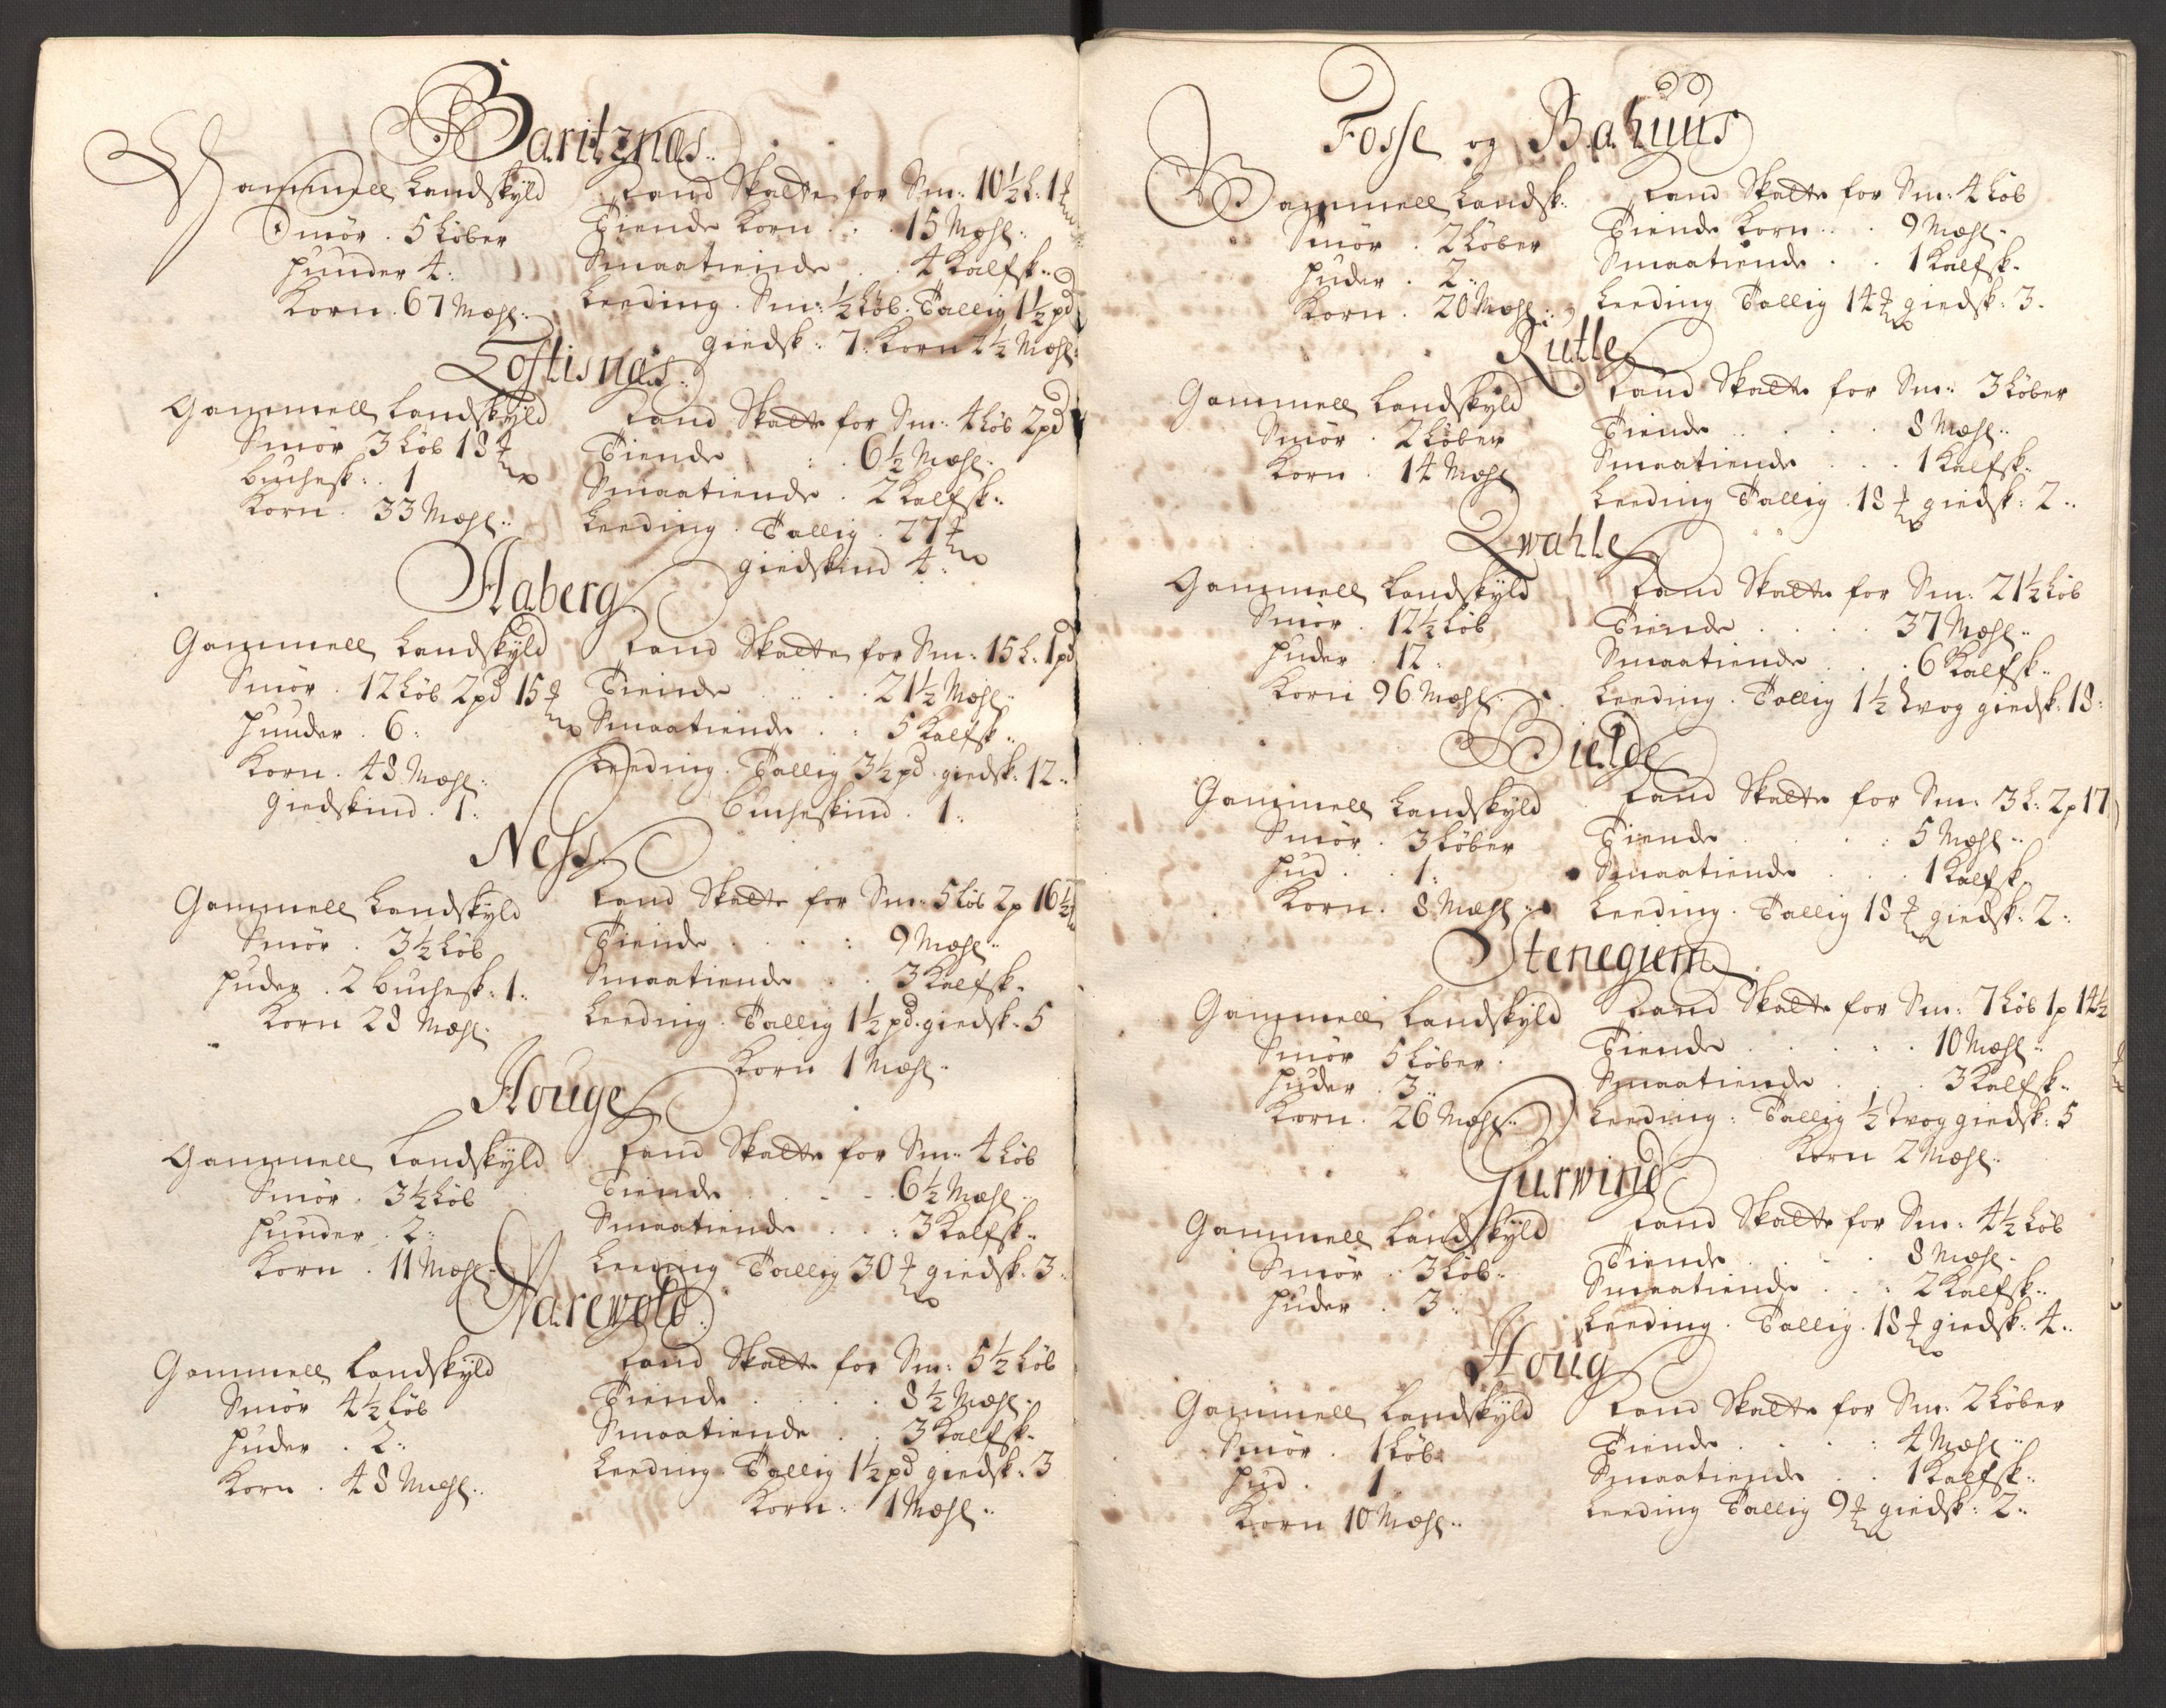 Baritznæs
Gammell Landskÿld
Smör . 5 Löber
Huuder 4:
Korn . 67 Mæhl:
Land Skatte for Sm: 10½ L: 1 ℔
Tiende Korn . . 15 Mæhl:
Smaatiende . . 4 Kalfsk:
Leeding . Sm: ½ Löb . Tallig 1½ pd
giedsk: 7: Korn 2½ Mæhl:
Loftisnæs
Gammell Landskÿld
Smör 3 Löb 18 ℔
Buchesk: . 1
Korn . 33 Mæhl:
Land Skatte for Sm: 4 Löb 2 pd
Tiende : . 6½ Mæhl:
Smaatiende . 2 Kalfsk:
Leeding . Tallig . 27 ℔
giedskind 4:
Aaberg
Gammell Landskÿld
Smör . 12 Löb 2 pd 15 ℔
Huuder . 6:
Korn . 48 Mæhl:
giedskind . 1:
Land Skatte for Sm: 15 L: 1 pd
Tiende . . . 21½ Mæhl:
Smaatiende . : 5 Kalfsk:
Leeding . Tallig 3½ pd . giedsk: 12:
Bucheskind . 1:
Ness
Gammell Landskÿld
Smör . 3½ Löb
Huder . 2 Buchesk: 1:
Korn 28 Mæhl:
Land Skatte for Sm: 5 Löb 2 p 16½
Tiende . . . : 9 Mæhl:
Smaatiende . . 3 Kalfsk:
Leeding . Tallig 1½ pd. giedsk: 5
Korn 1 Mæhl:
Houge
Gammell Landskÿld
Smör . 3½ Löb
Huuder . 2:
Korn . 11 Mæhl:
Land Skatte for Sm: 4 Löb
Tiende . . . 6½ Mæhl:
Smaatiende . . : 3 Kalfsk:
Leeding Tallig 30 ℔ giedsk: 3:
Narewold
Gammell Landskÿld
Smör 4½ Löb
Huder . 2:
Korn . 48 Mæhl:
Land Skatte for Sm: 5½ Löb
Tiende . . . . 8½ Mæhl:
Smaatiende . . 3 Kalfsk:
Leeding . Tallig 1½ pd giedsk: 3
Korn: 1 Mæhl:
Fosse og Bahuus
Gammell Landsk:
Smör . 2 Löber
Huder . 2:
Korn . 20 Mæhl:
Land Skatte for Sm: 4 Löb
Tiende Korn . . 9 Mæhl:
Smaatiende . . 1 Kalfsk:
Leeding Tallig 14 ℔ giedsk: 3.
Rutle
Gammell Landskÿld
Smör . 2 Löber
Korn . 14 Mæhl
Land Skatte for Sm: 3 Löber
Tiende . . . . 8 Mæhl:
Smaatiende . . . 1 Kalfsk:
Leeding Tallig . 18 ℔ giedsk: 2:
Qwahle
Gammell Landskÿld
Smör . 12½ Löb
Huder . 12:
Korn 96 Mæhl:
Land Skatte for Sm: 21½ Löb
Tiende . . . . 37 Mæhl:
Smaatiende . . . 6 Kalfsk:
Leeding . Tallig 1½ Woog giedsk: 18:
Bielde
Gammell Landskÿld
Smör . 3 Löber
Hud . . 1:
Korn . 8 Mæhl:
Land Skatte for Sm: 3 L: 2 p 17
Tiende . . . : 5 Mæhl:
Smaatiende . . . 1 Kalfsk
Leeding . Tallig 18 ℔ giedsk: 2:
Stenegiem
Gammell Landskÿld
Smör 5 Löber .
Huder . 3:
Korn . 26 Mæhl:
Land Skatte for Sm: 7 Löb 1 p 14½ ℔
Tiende . . . . . 10 Mæhl:
Smaatiende . . . 3 Kalfsk:
Leeding: Tallig ½ Woog giedsk: 5
Korn 2 Mæhl:
Gurwind
Gammell Landskÿld
Smör . 3 Löb .
Huder . 3:
Land Skatte for Sm: 4½ Löb
Tiende . . . . 8 Mæhl:
Smaatiende . . : 2 Kalfsk:
Leeding . Tallig . 18 ℔ giedsk: 4:
Houg
Gammell Landskÿld
Smör . 1 Löb
Hud . 1
Korn 10 Mæhl:
Land Skatte for Sm: 2 Löber
Tiende . . . : 4 Mæhl:
Smaatiende . . 1 Kalfsk:
Leeding Tallig 9 ℔ giedsk: 2: